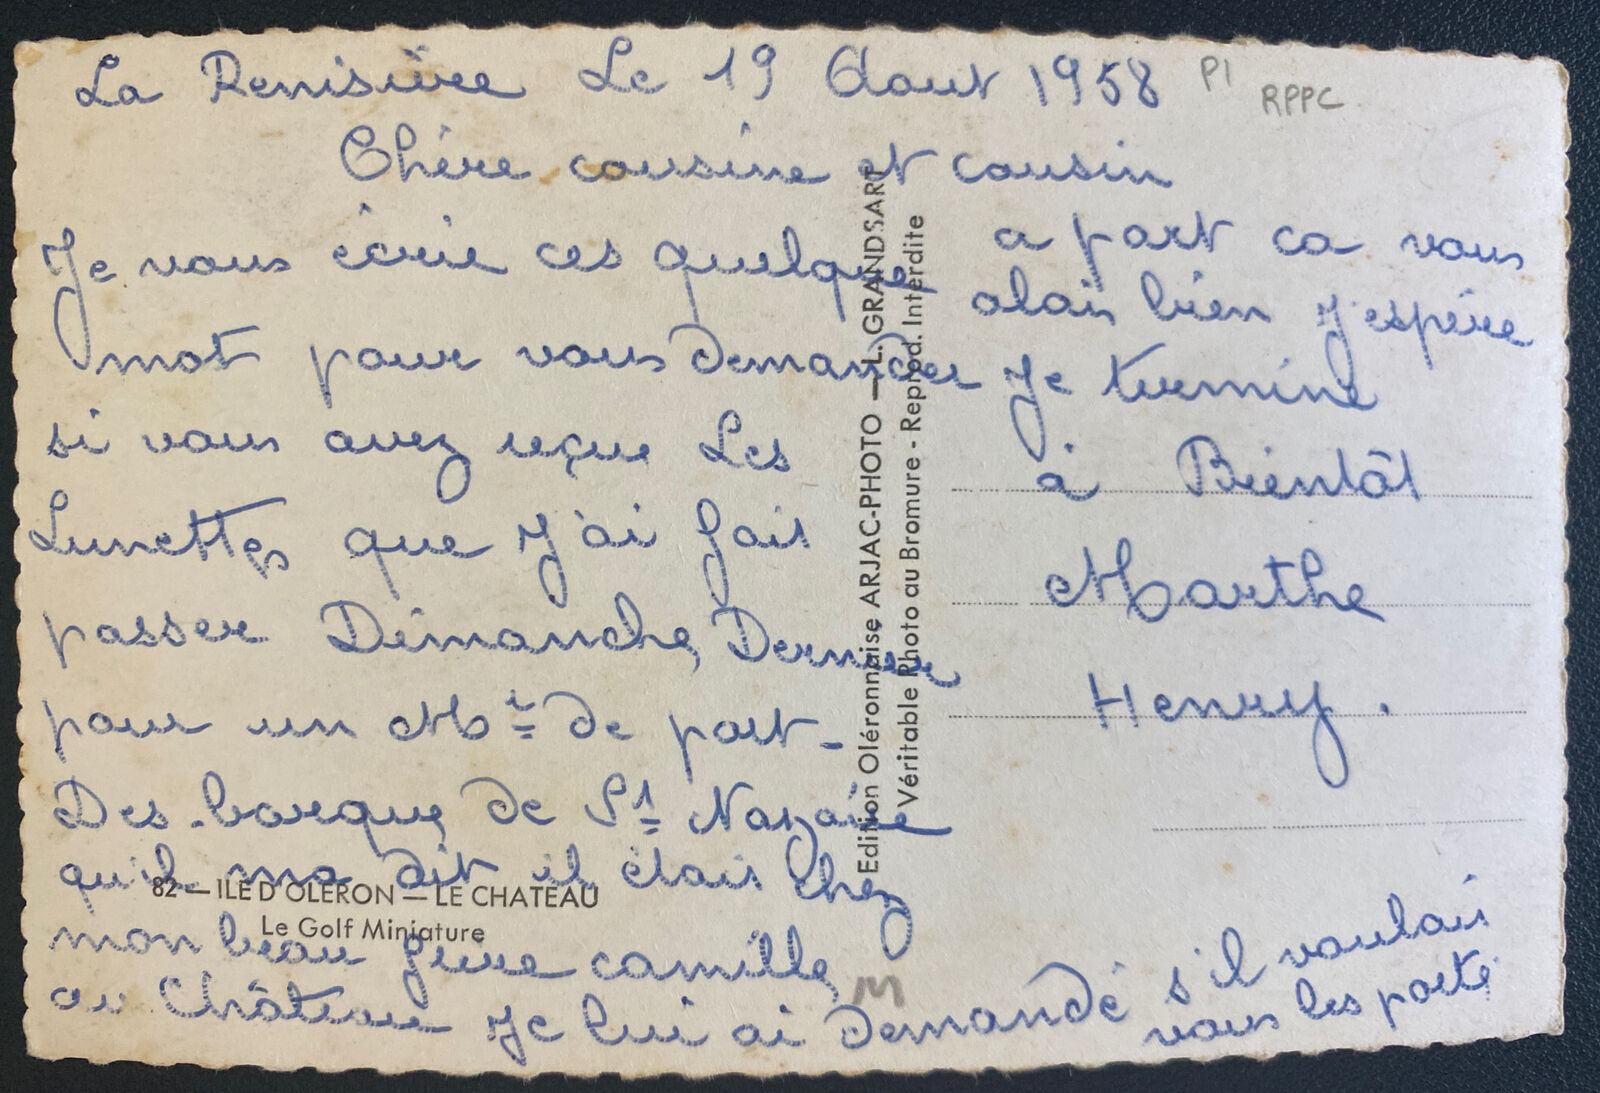 La Renisière Le 19 Aout 1958
P1
RPPC
Chère cousine et cousin
Je vous écrie ces quelque
mot pour vous demander
si vous avez reçue Les
Lunettes que J'ai fait
passer Dimanche Dernier
pour un Mr de port-
Des-barques de St Nazaire
qu'il ma dit il étais chez
mon beau frère camille
au Château Je lui ai demandé s'il voulais
vous les porté
a part ca vous
alais bien J'espère
Je termine
à Bientôt
Marthe
Henry.
Edition Oléronnaise ARJAC-PHOTO — L. GRANDSART
Véritable Photo au Bromure - Reprod. Interdite
82 — ILE D'OLERON — LE CHATEAU
Le Golf Miniature
M